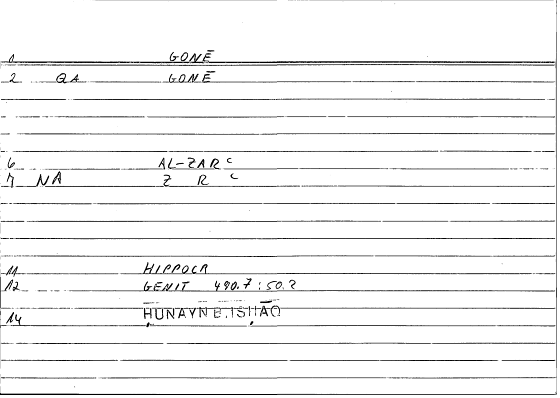 1 GONĒ
2 QA GONĒ
6 AL-ZARʿ
7 NA Z R ʿ
11 HIPPOCR
12 GENIT 490.7 : 50.2
14 ḤUNAYN B. ISḤĀQ